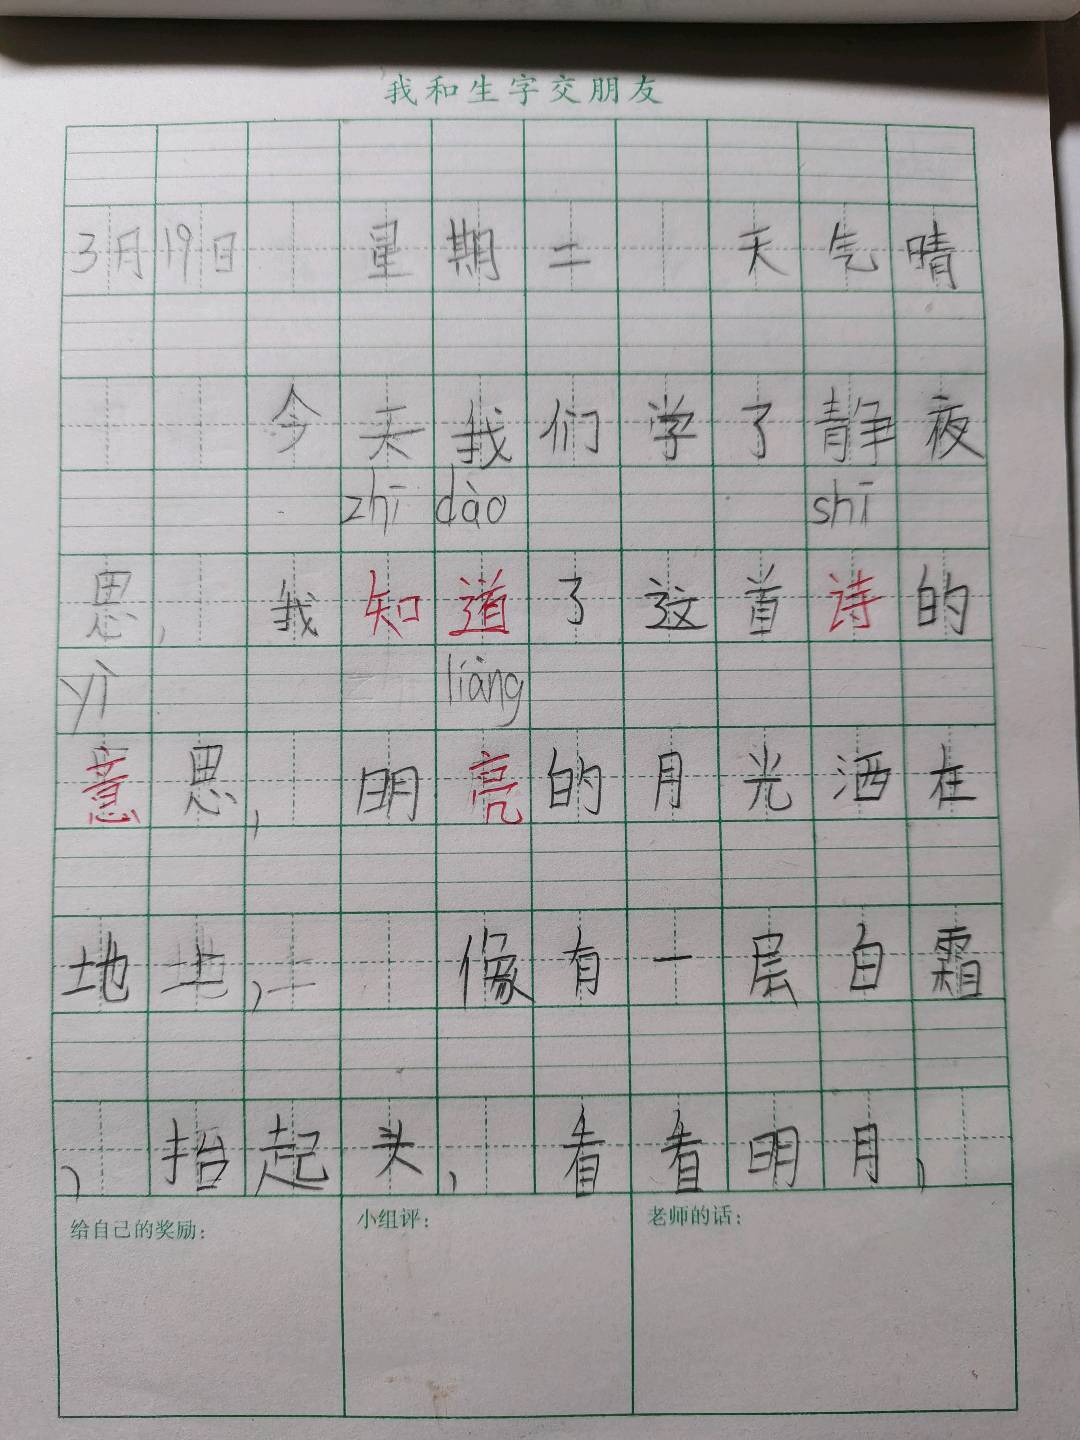 我和生字交朋友
3月19日 星期二 天气晴
今天我们学了静夜
zhī dào shī
思，我知道了这首诗的
yì liàng
意思，明亮的月光洒在
地地，上 像有一层白霜
，抬起头，看看明月，
给自己的奖励： 小组评： 老师的话：